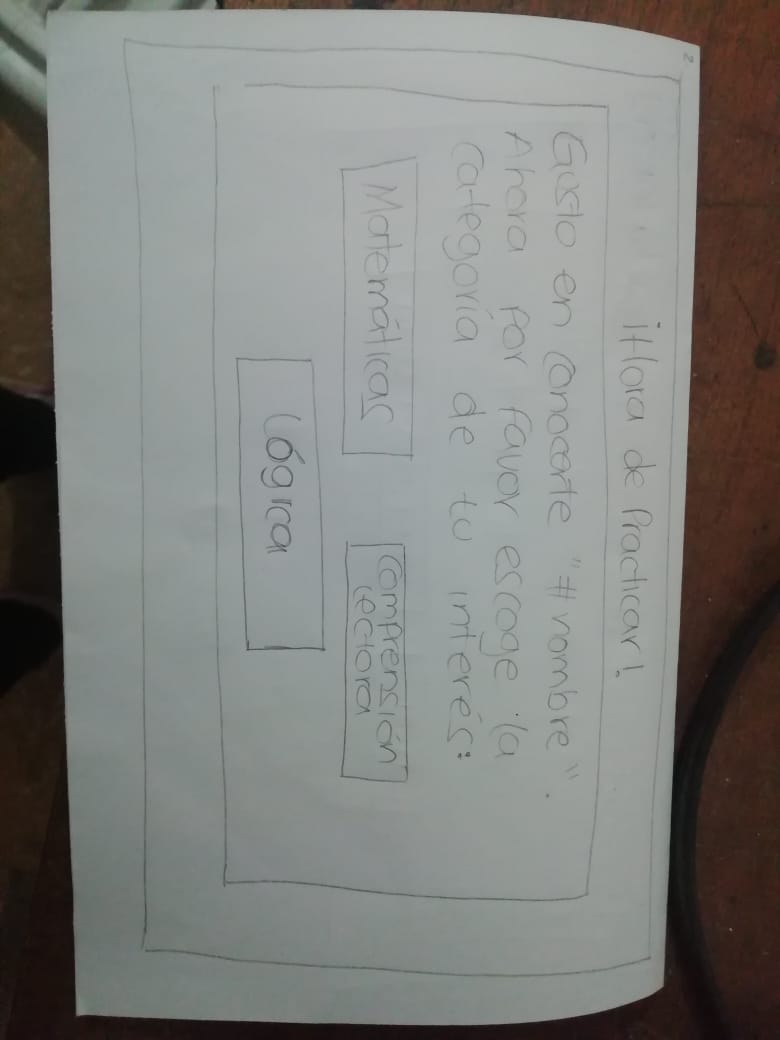 2
¡Hora de Practicar!
Gusto en conocerte "#nombre".
Ahora por favor escoge la
categoría de tu interés:
Matemáticas
Comprensión
lectora
Lógica